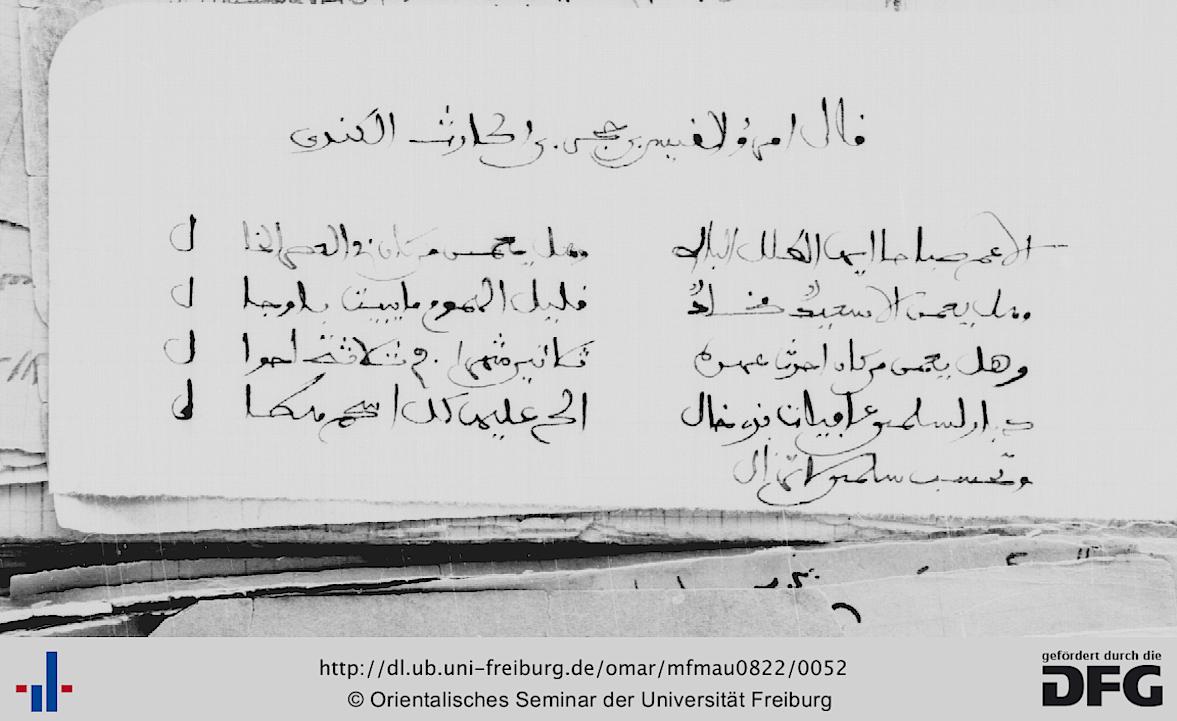 قال امرؤ القيس بن حجر بن الحارث الكندي
الا عم صباحا ايها الطلل البالي وهل يعمن من كان في العصر الخا ل
وهل يعمن الا سعيدٌ مخلدٌ قليل الهموم ما يبيت باوجا ل
وهل يعمن من كان احدث عهده ثلاثين شهرا في ثلاثة احوا ل
ديار لسلمى عافيات بذي خال الح عليها كل اسحم هطا ل
وتحسب سلمى لا تزال
http://dl.ub.uni-freiburg.de/omar/mfmau0822/0052
© Orientalisches Seminar der Universität Freiburg
gefördert durch die
DFG